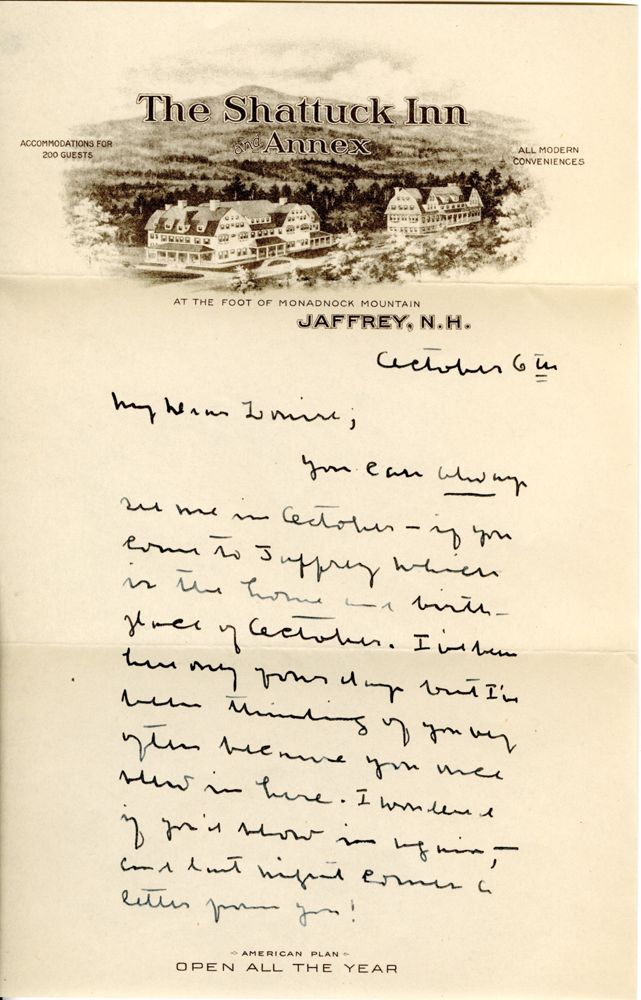 The Shattuck Inn
and Annex
ACCOMMODATIONS FOR
200 GUESTS
ALL MODERN
CONVENIENCES
AT THE FOOT OF MONADNOCK MOUNTAIN
JAFFREY, N.H.
October 6th
My Dear Louise;
You can always
see me in October – if you
come to Jaffrey which
is the home and birth-
place of October. I've been
here only four days but I've
been thinking of you very
often because you once
blew in here. I wondered
if you'd blow in again, –
and last night comes a
letter from you!
AMERICAN PLAN
OPEN ALL THE YEAR